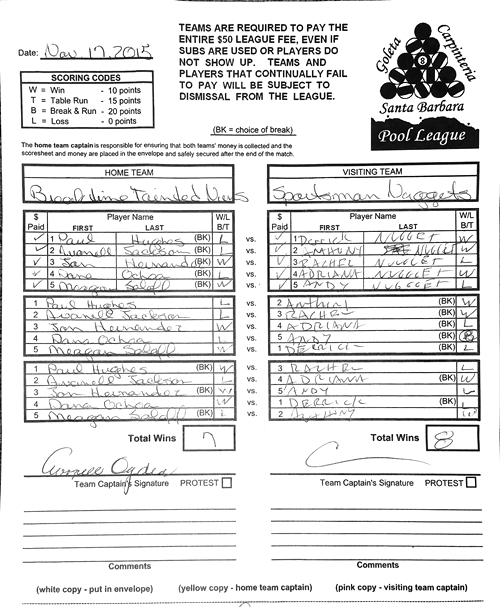 Date: Nov 17, 2015
TEAMS ARE REQUIRED TO PAY THE
ENTIRE $50 LEAGUE FEE, EVEN IF
SUBS ARE USED OR PLAYERS DO
NOT SHOW UP. TEAMS AND
PLAYERS THAT CONTINUALLY FAIL
TO PAY WILL BE SUBJECT TO
DISMISSAL FROM THE LEAGUE.
(BK = choice of break)
Goleta Carpinteria
8
Santa Barbara
Pool League
SCORING CODES
W = Win - 10 points
T = Table Run - 15 points
B = Break & Run - 20 points
L = Loss - 0 points
The home team captain is responsible for ensuring that both teams' money is collected and the
scoresheet and money are placed in the envelope and safely secured after the end of the match.
HOME TEAM VISITING TEAM
Tainted Sportsman Nuggets
$ Paid Player Name FIRST LAST W/L B/T $ Paid Player Name FIRST LAST W/L B/T
1 Paul Hughes (BK) L vs. 1 Derrick NUGGET W
2 Jackson (BK) L vs. 2 ANTHONY NUGGET W
3 Jan Hernandez (BK) W vs. 3 RACHEL NUGGET L
4 Dana Ochoa (BK) L vs. 4 ADRIANA NUGGET W
5 Meagan (BK) W vs. 5 ANDY NUGGET L
1 Paul Hughes L vs. 2 Anthony (BK) W
2 Jackson L vs. 3 RACHEL (BK) W
3 Jan Hernandez W vs. 4 ADRIANA (BK) L
4 Dana Ochoa L vs. 5 ANDY (BK) B
5 Meagan W vs. 1 DERRICK (BK) L
1 Paul Hughes (BK) W vs. 3 RACHEL L
2 Jackson (BK) L vs. 4 ADRIANA (BK) W
3 Jan Hernandez (BK) W vs. 5 ANDY L
4 Dana Ochoa W vs. 1 DERRICK (BK) L
5 Meagan (BK) L vs. 2 Anthony W
Total Wins 7 Total Wins 8
Team Captain's Signature PROTEST Team Captain's Signature PROTEST
Comments Comments
(white copy - put in envelope) (yellow copy - home team captain) (pink copy - visiting team captain)